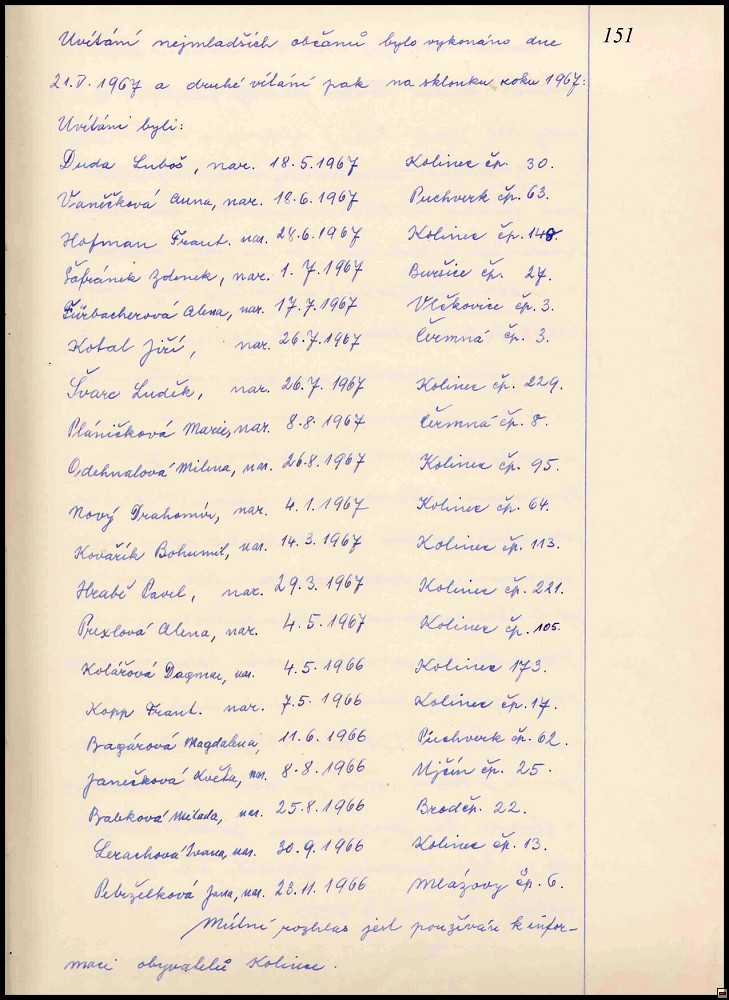 151
Uvítání nejmladších občanů bylo vykonáno dne
21.V. 1967 a druhé vítání pak na sklonku roku 1967:
Uvítáni byli:
Duda Luboš, nar. 18.5.1967 Kolinec čp. 30.
Vaněčková Anna, nar. 18.6.1967 Puchverk čp. 63.
Hofman Frant. nar. 28.6.1967 Kolinec čp. 148.
Šafránek Zdenek, nar. 1.7.1967 Buršice čp. 27.
Fürbacherová Alena, nar. 17.7.1967 Vlčkovice čp. 3.
Kotal Jiří, nar. 26.7.1967 Čermná čp. 3.
Švarc Luděk, nar. 26.7.1967 Kolinec čp. 229.
Pláničková Marie, nar. 8.8.1967 Čermná čp. 8.
Odehnalová Milena, nar. 26.8.1967 Kolinec čp. 95.
Nový Drahomír, nar. 4.1.1967 Kolinec čp. 64.
Kovářík Bohumil, nar. 14.3.1967 Kolinec čp. 113.
Hrabě Pavel, nar. 29.3.1967 Kolinec čp. 221.
Prexlová Alena, nar. 4.5.1967 Kolinec čp. 105.
Kolářová Dagmar, nar. 4.5.1966 Kolinec 173.
Kopp Frant. nar. 7.5.1966 Kolinec čp. 17.
Bagárová Magdalena, 11.6.1966 Puchverk čp. 62.
Janečková Květa, nar. 8.8.1966 Ujčín čp. 25.
Babková Milada, nar. 25.8.1966 Brod čp. 22.
Lerachová Ivana, nar. 30.9.1966 Kolinec čp. 13.
Petrželková Jana, nar. 23.11.1966 Mlázovy čp. 6.
Místní rozhlas jest používán k infor-
maci obyvatelů Kolince.